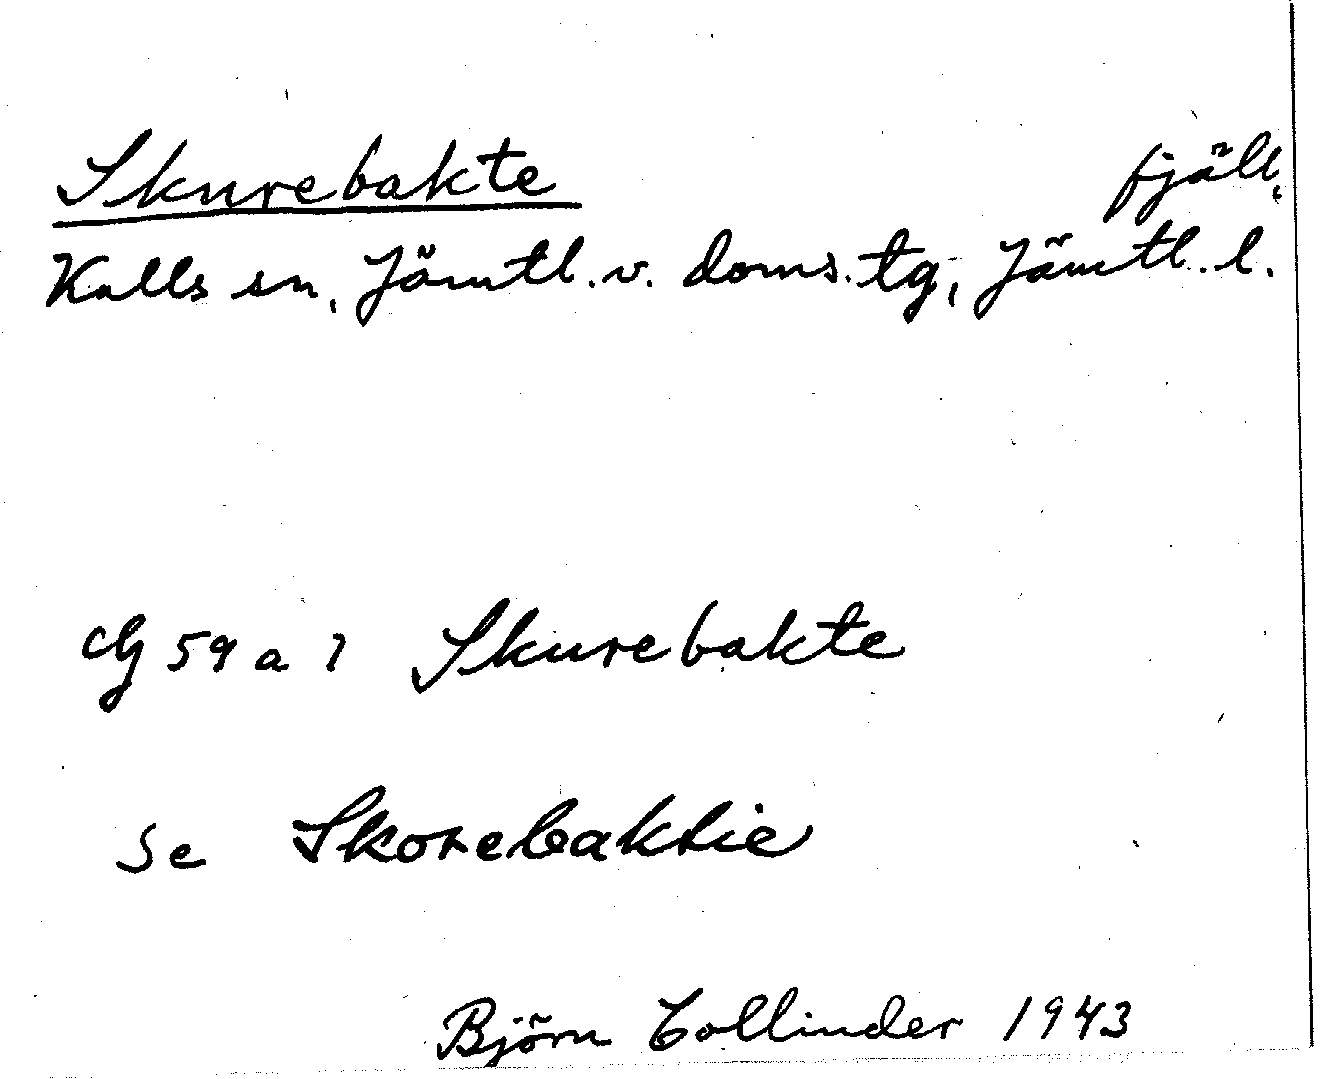 Skurebakte fjäll.
Kalls sn, Jämtl. v. doms. tg, Jämtl. l.
59 a Skurebakte
Se Skorebaktie
Björn Collinder 1943